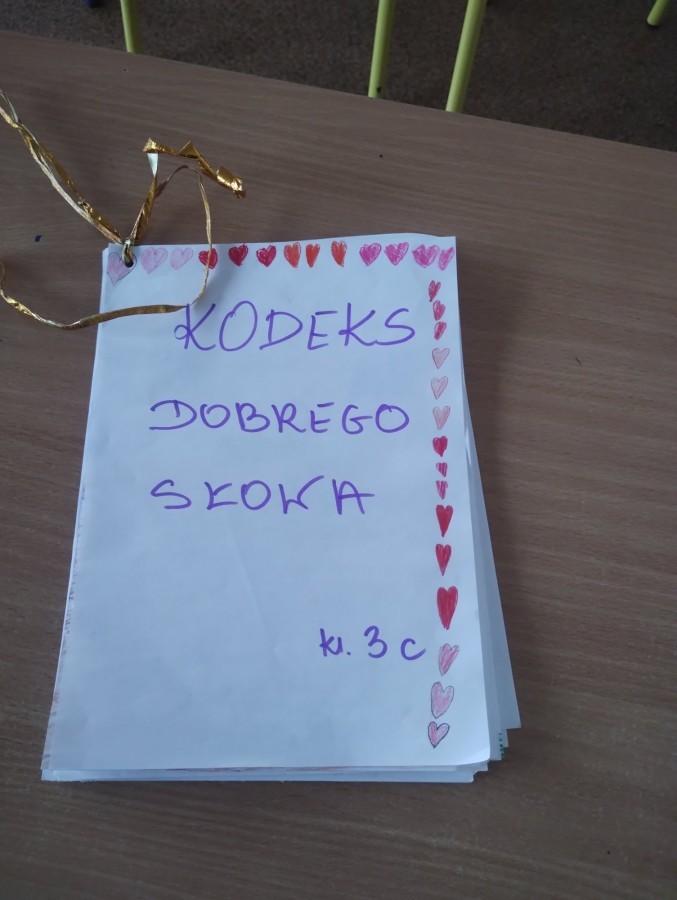 KODEKS
DOBREGO
SŁOWA
kl. 3 c